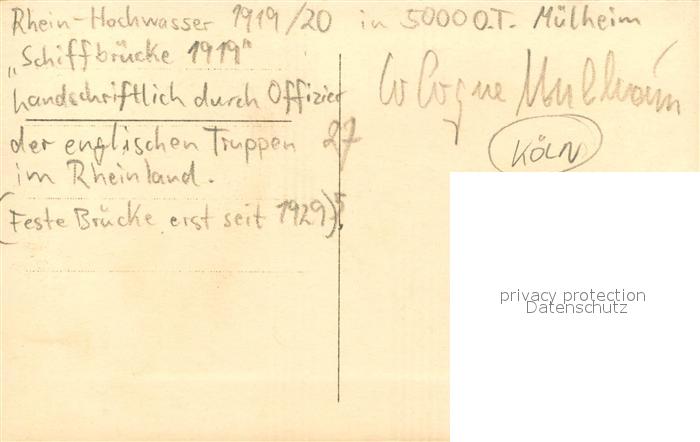 Rhein-Hochwasser 1919/20 in 5000 O.T. Mülheim
„Schiffbrücke 1919"
handschriftlich durch Offizier
der englischen Truppen
im Rheinland.
(Feste Brücke erst seit 1929)!
27
Cologne Mulheim
KÖLN
privacy protection
Datenschutz